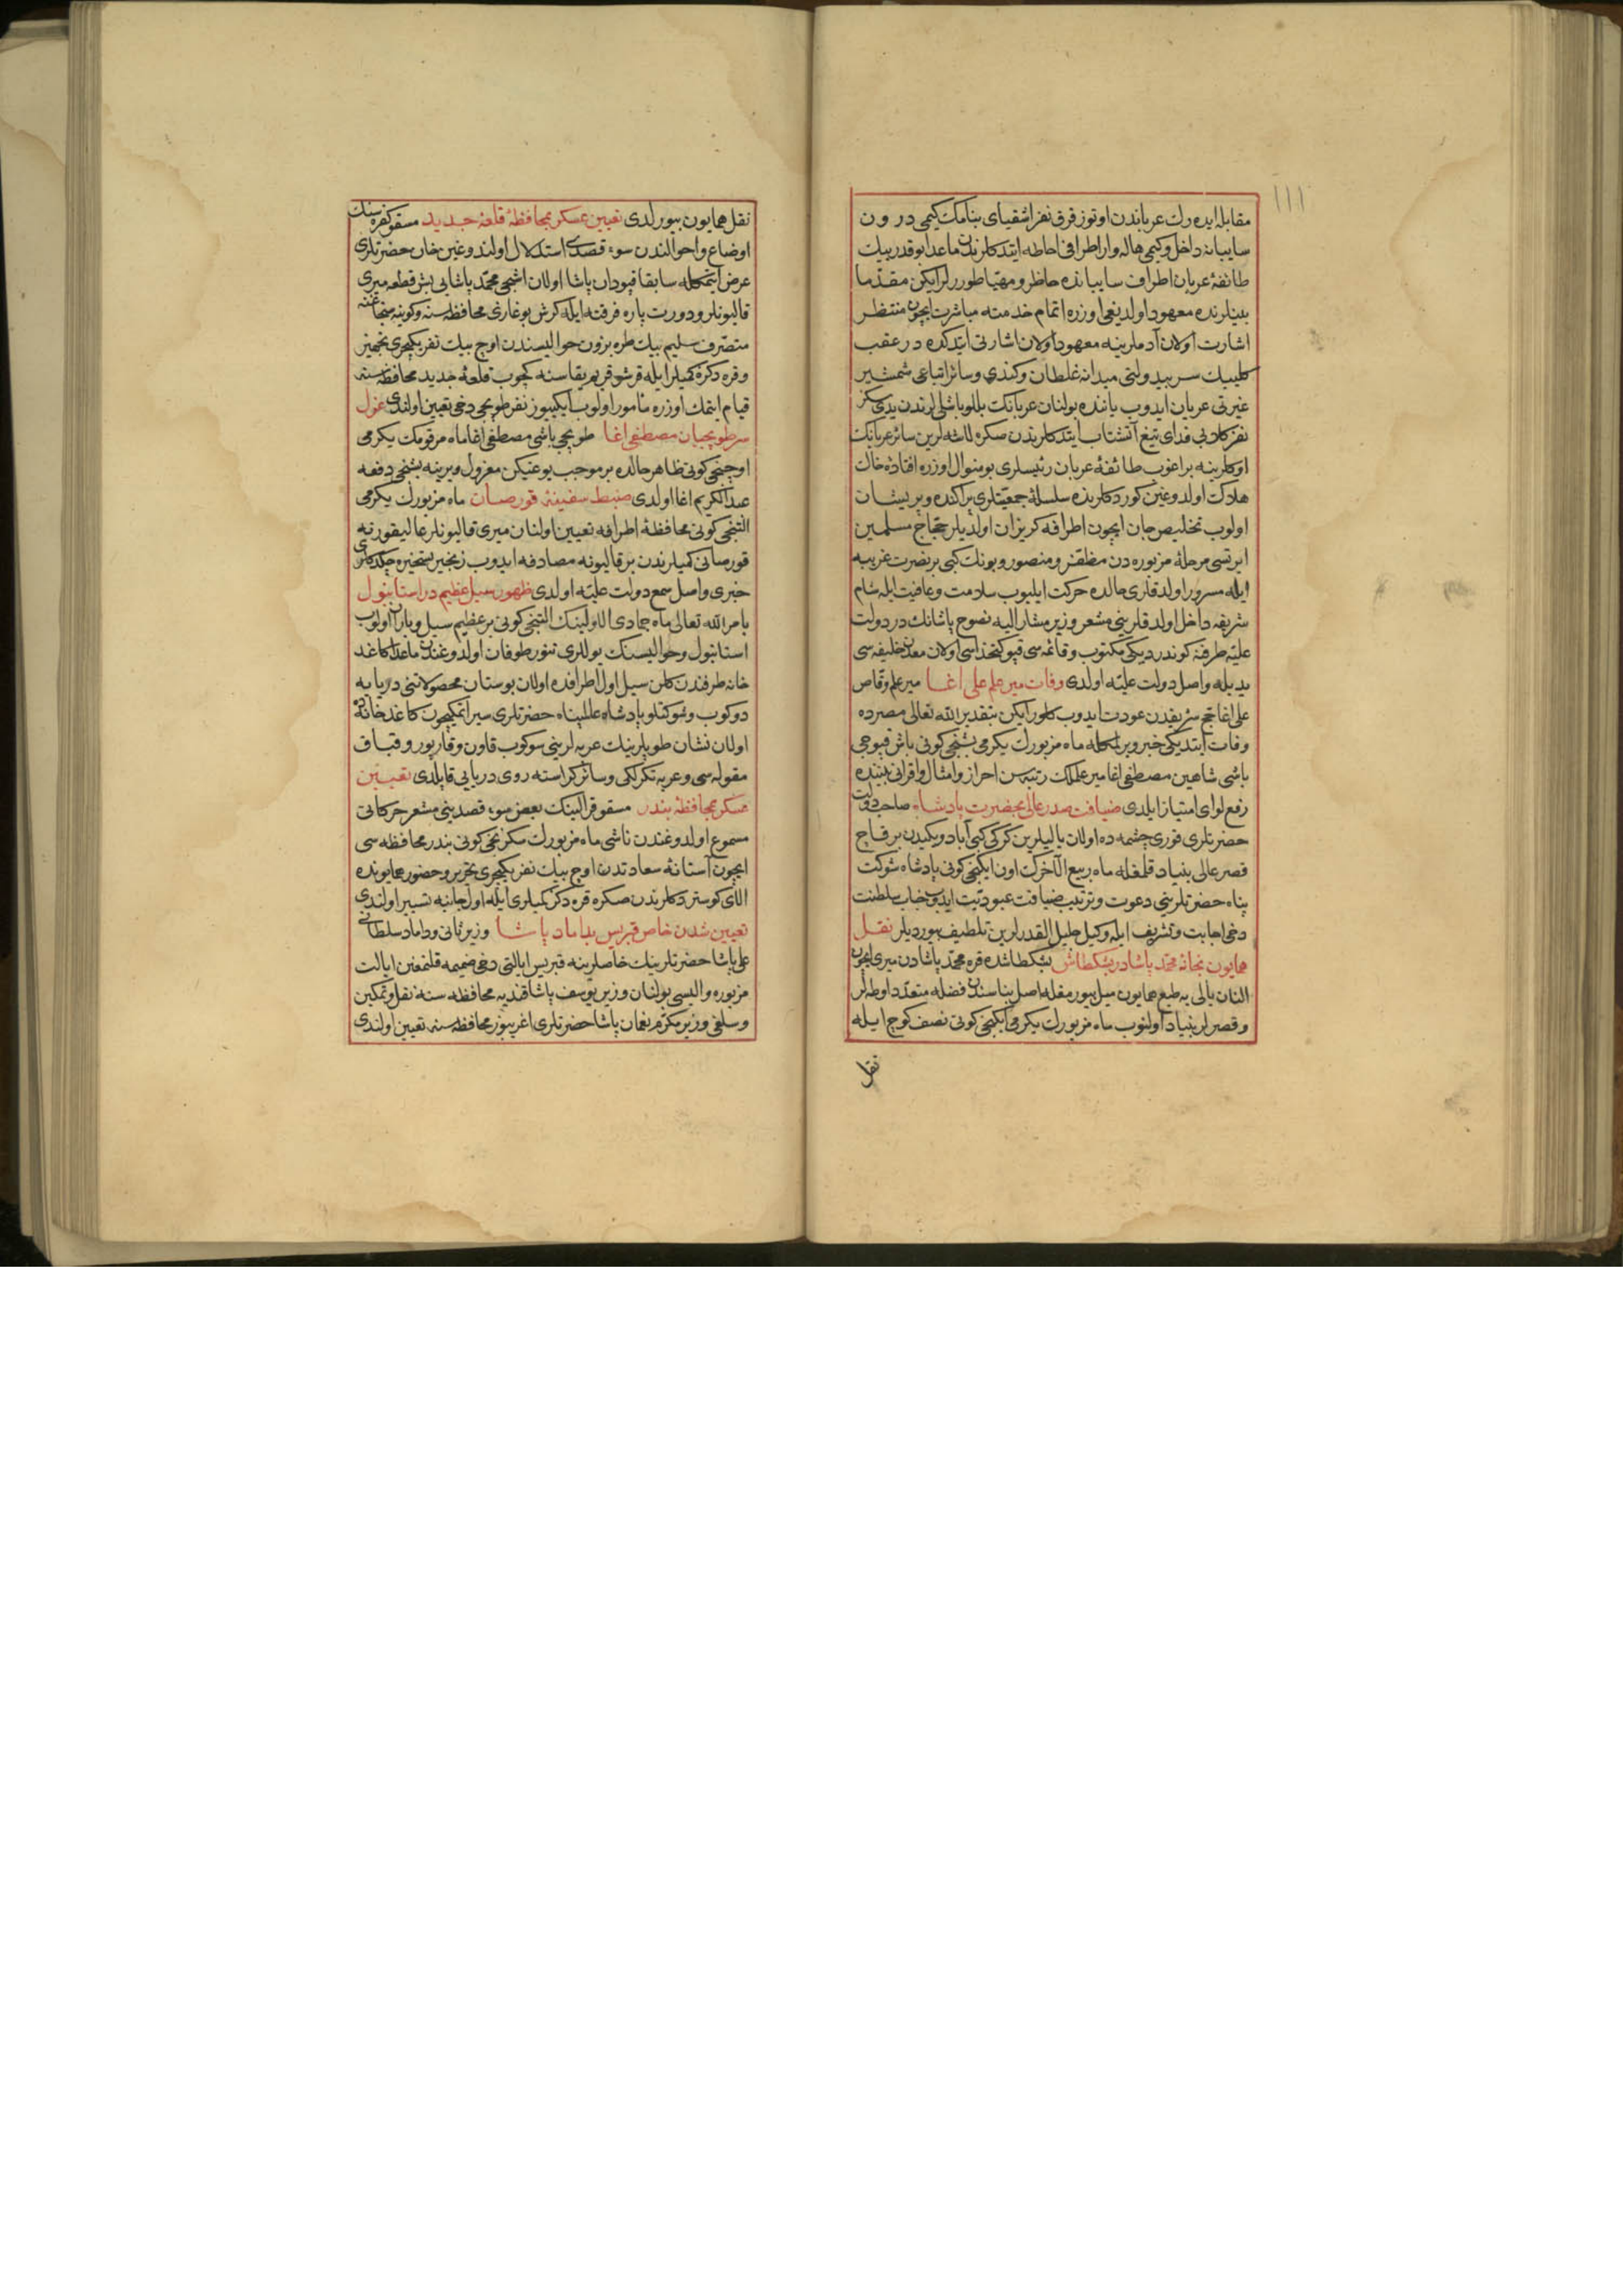 ١١١
مقابله ايده رك عرباندن اوتوز قرق نفر اشقياى بنامك كيمى درون
سايبانه داخل وكيمى هاله وار اطرافى احاطه ايتدكلرندن ماعدا بو قدر بيك
طائفۀ عربان اطراف سايبانده حاظر و مهيا طوررلر ايكن مقدما
بينلرنده معهود اولديغى اوزره اتمام خدمته مباشرت ايچون منتظر
اشارت اولان آدملرينه معهود اولان اشارتى ايتدكده در عقب
كليبك سر بيدولتى ميدانه غلطان وكندى وسائر اتباعى شمشير
غيرتى عريان ايدوب ياننده بولنان عربانك بللو باشلولرندن يدى سكز
نفر كلابى فداى تيغ آتشتاب ايتدكلرندن صكره لاشه لرين سائر عربانك
اوكلرينه براغوب طائفۀ عربان رئيسلرى بو منوال اوزره افتادۀ خاك
هلاك اولدوغين كوردكلرنده سلسلۀ جمعيتلرى پراكنده و پريشان
اولوب تخليص جان ايچون اطرافه كريزان اولديلر حجاج مسلمين
ايرتسى مرحلۀ مزبوره دن مظفر و منصور و بونك كبى بر نصرت غريبه
ايله مسرور اولدقلرى حالده حركت ايليوب سلامت وعافيت ايله شام
شريفه داخل اولدقلرينى مشعر وزير مشار اليه نصوح پاشانك در دولت
عليه طرفنه كوندرديكى مكتوب وقائمه سى قپو كتخداسى اولان معدن خليفه سى
يديله واصل دولت عليه اولدى وفات مير علم على اغا مير علم وقاص
على اغا حج شريفدن عودت ايدوب كلور ايكن بتقدير الله تعالى مصرده
وفات ايتديكى خبر ويرلمكله ماه مزبورك يكرمى بشنجى كونى باش قپوجى
باشى شاهين مصطفى اغا مير علملك رتبه سن احراز وامثال واقرانى بيننده
رفع لواى امتياز ايلدى ضيافت صدر عالى بحضرت پادشاه صاحب دولت
حضرتلرى قورى چشمه ده اولان ياليلرين كركى كبى آباد و يكيدن بر قاچ
قصر عالى بنياد قلمغله ماه ربيع الآخرك اون ايكنجى كونى پادشاه شوكت
پناه حضرتلرينى دعوت وترتيب ضيافت عبوديت ايدوب جناب سلطنت
دخى اجابت وتشريف ايله وكيل جليل القدرلرين تلطيف بيورديلر نقل
همايون بخانۀ محمد پاشا در بشكطاش بشكطاشده قره محمد پاشادن ميرى ايچون
النان يالى يه طبع همايون ميل بيورمغله اصل بناسندن فضله متعدد اوطه لر
وقصرلر بنياد اولنوب ماه مزبورك يكرمى ايكنجى كونى نصف كوچ ايله
نقل
نقل همايون بيورلدى تعيين عسكر بمحافظۀ قلعۀ جديد مسقو كفره سنك
اوضاع واحوالندن سوء قصدى استدلال اولندوغين خان حضرتلرى
عرض ايتمكله سابقا قپودان پاشا اولان اشجى محمد پاشايى بش قطعه ميرى
قاليونلر ودورت پاره فرقته ايله كرش بوغازى محافظه سنه وكوينه سنجاغنه
متصرف سليم بيك طره بزون حواليسندن اوچ بيك نفر يكيچرى تجهيز
وقره دكز كميلر ايله قرشو قريم يقاسنه كچوب قلعۀ جديد محافظه سنه
قيام ايتمك اوزره مأمور اولوب ايكيوز نفر طوپجى دخى تعيين اولندى عزل
سر طوپجيان مصطفى اغا طوپجى باشى مصطفى اغا ماه مرقومك يكرمى
اوچنجى كونى ظاهر حالده بر موجب يوغيكن معزول ويرينه بشنجى دفعه
عبد الكريم اغا اولدى ضبط سفينۀ قورصان ماه مزبورك يكرمى
التنجى كونى محافظۀ اطرافه تعيين اولنان ميرى قاليونلر عاليقورنه
قورصانى كميلرندن بر قاليونه مصادفه ايدوب زنجير تسخيره چكدكلرى
خبرى واصل سمع دولت عليه اولدى ظهور سيل عظيم در استانبول
بامر الله تعالى ماه جمادى الاولينك التنجى كونى بر عظيم سيل وباران اولوب
استانبول وحواليسنك يوللرى تنور طوفان اولدوغندن ماعدا كاغد
خانه طرفندن كلن سيل اول اطرافده اولان بوستان محصولاتنى دريايه
دوكوب وشوكتلو پادشاه عالمپناه حضرتلرى سير ايتمكيچون كاغد خانه ده
اولان نشان طوپلرينك عربه لرينى سوكوب قاون وقارپوز وقباق
مقوله سى وعربه تكرلكى وسائر كراسته روى دريايى قاپلدى تعيين
عسكر بمحافظۀ بندر مسقو قرالينك بعض سوء قصدينى مشعر حركاتى
مسموع اولدوغندن ناشى ماه مزبورك سكزنجى كونى بندر محافظه سى
ايچون آستانۀ سعادتدن اوچ بيك نفر يكيچرى تحرير وحضور همايونده
الاى كوستردكلرندن صكره قره دكز كميلرى ايله اول جانبه تسيير اولندى
تعيين شدن خاص قبريس بداماد پاشا وزير ثانى وداماد سلطانى
على پاشا حضرتلرينك خاصلرينه قبريس ايالتى دخى ضميمه قلنمغين ايالت
مزبوره واليسى بولنان وزير يوسف پاشا قنديه محافظه سنه نقل وتمكين
وسلفى وزير مكرم نعمان پاشا حضرتلرى اغريبوز محافظه سنه تعيين اولندى